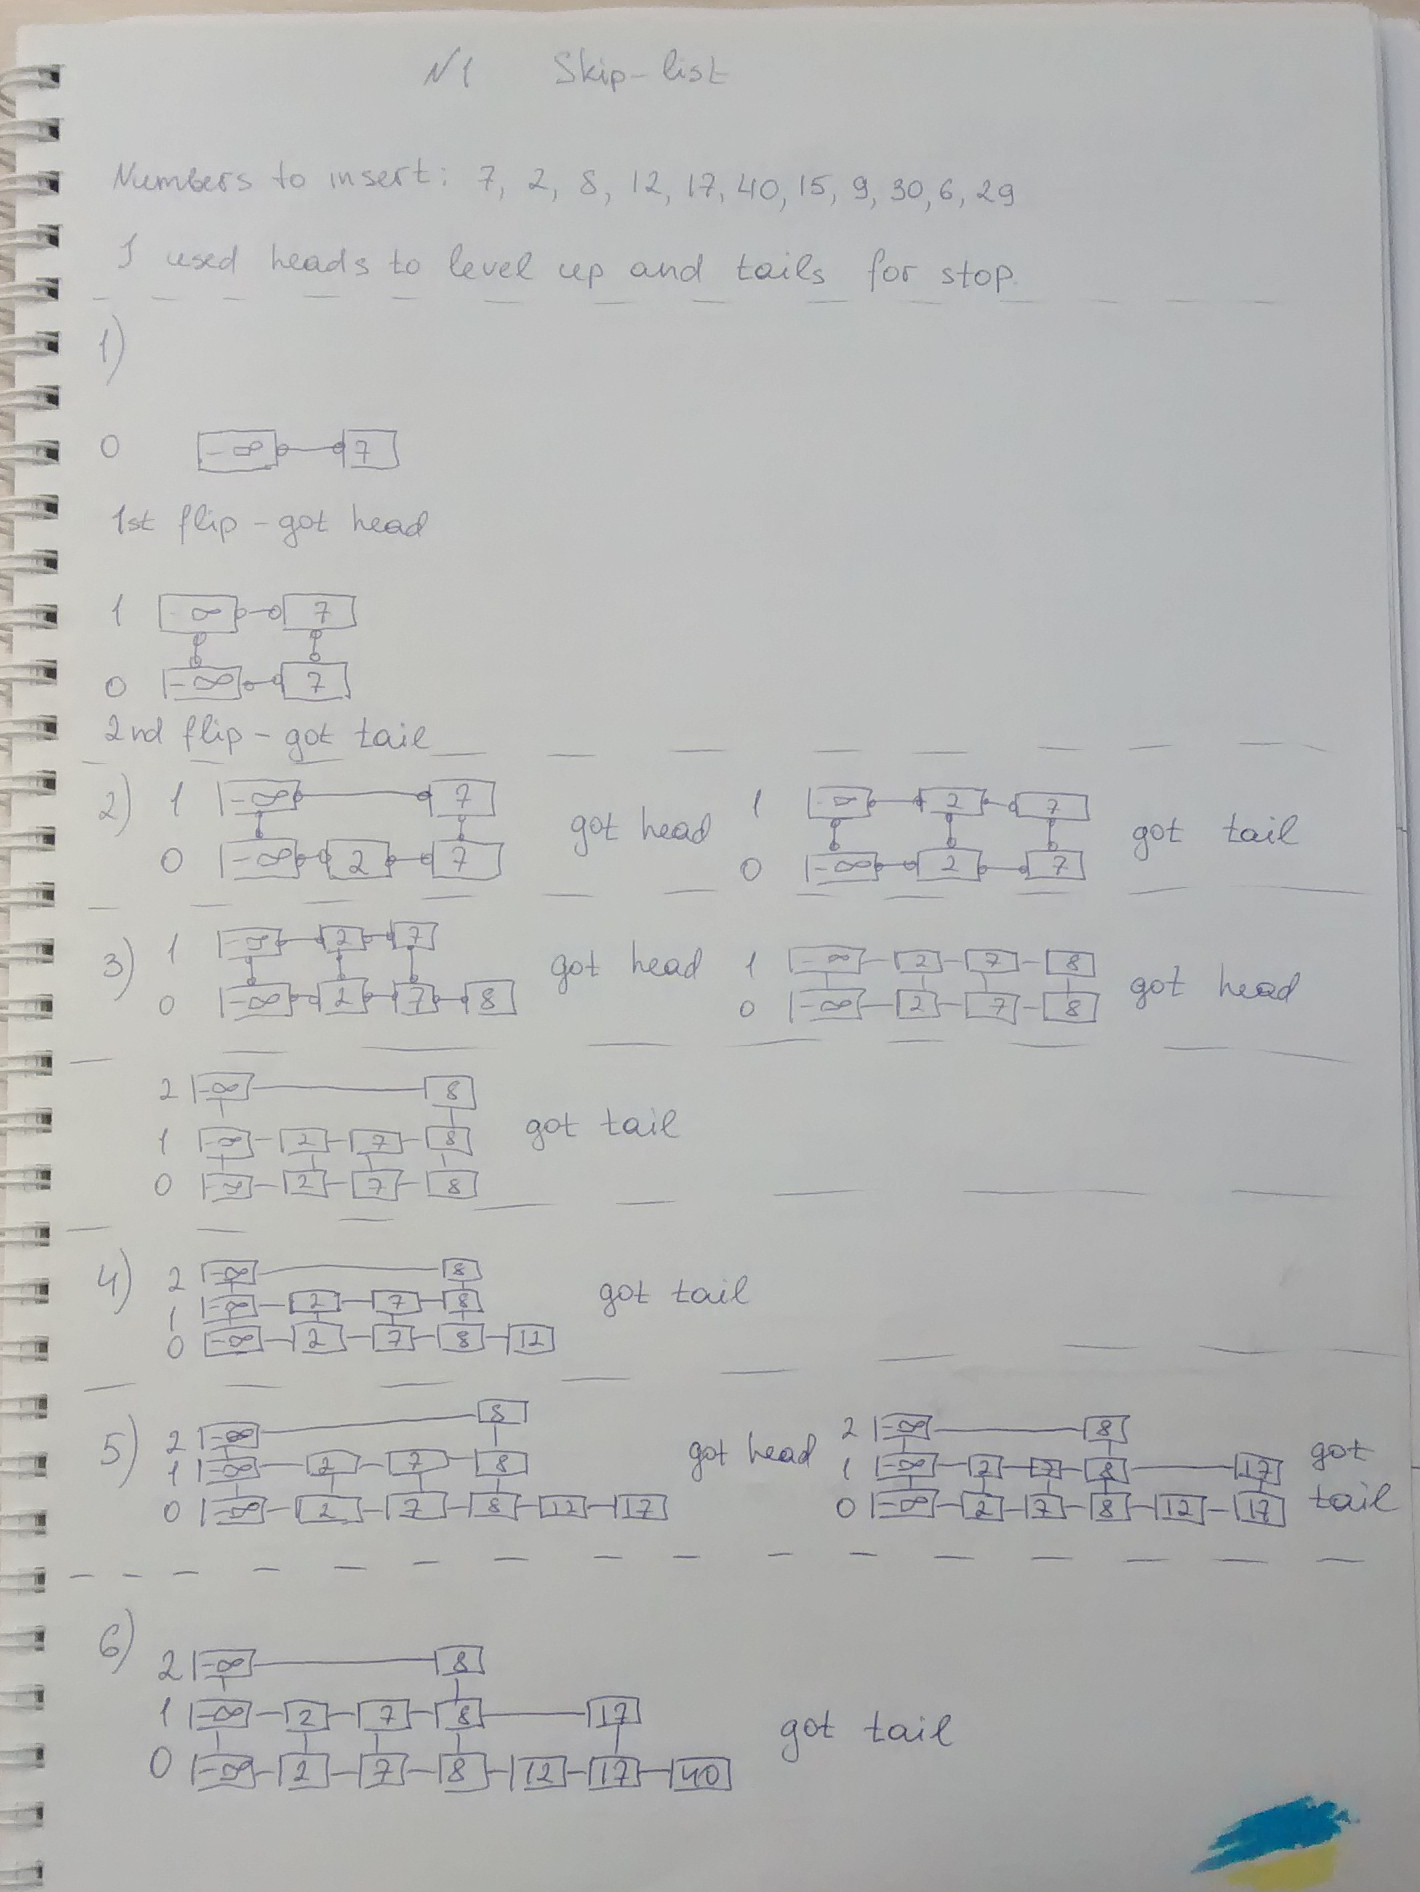 N1 Skip-list
Numbers to insert: 7, 2, 8, 12, 17, 40, 15, 9, 30, 6, 29
I used heads to level up and tails for stop.
1)
0 -∞ 7
1st flip - got head
1 -∞ 7
0 -∞ 7
2nd flip - got tail
2) 1 -∞ 7
0 -∞ 2 7
got head
1 -∞ 2 7
0 -∞ 2 7
got tail
3) 1 -∞ 2 7
0 -∞ 2 7 8
got head
1 -∞ 2 7 8
0 -∞ 2 7 8
got head
2 -∞ 8
1 -∞ 2 7 8
0 -∞ 2 7 8
got tail
4) 2 -∞ 8
1 -∞ 2 7 8
0 -∞ 2 7 8 12
got tail
5) 2 -∞ 8
1 -∞ 2 7 8
0 -∞ 2 7 8 12 17
got head
2 -∞ 8
1 -∞ 2 7 8 17
0 -∞ 2 7 8 12 17
got
tail
6)
2 -∞ 8
1 -∞ 2 7 8 17
0 -∞ 2 7 8 12 17 40
got tail